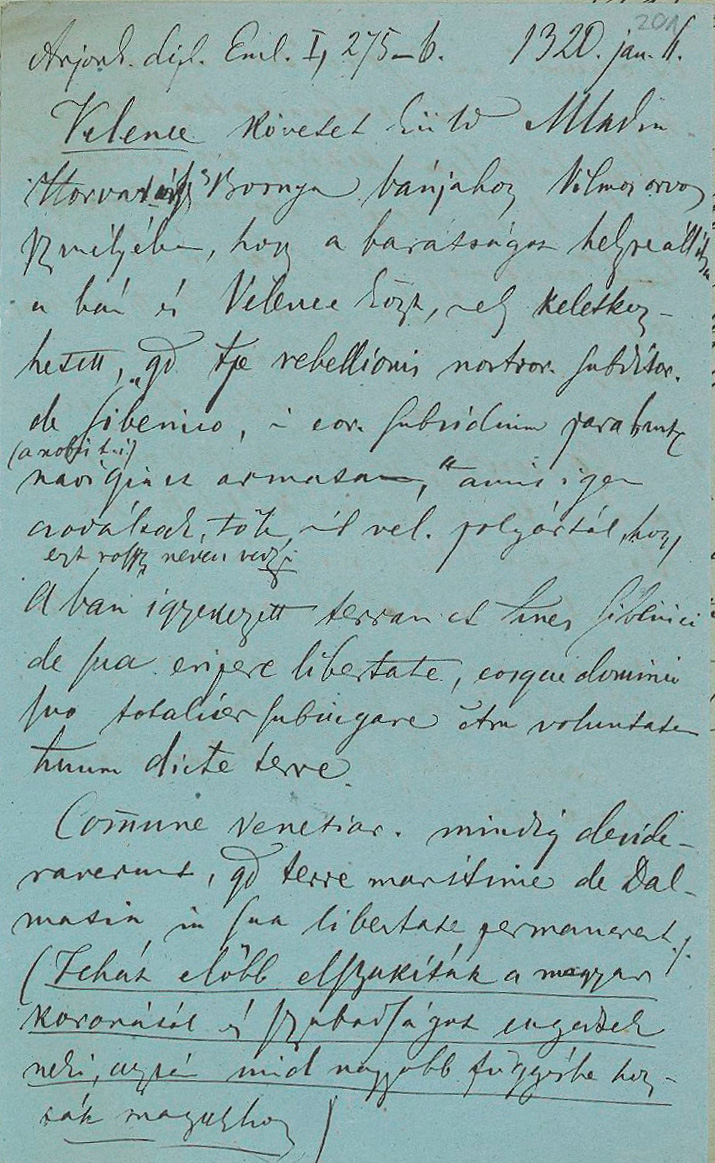 201
Anjouk. dipl. Eml. I, 275–6. 1320. jan. 11.
Velence követet küld Mladin
Horvátország s Bosnya bánjához Vilmos orvos
személyében, hogy a barátságot helyreállítsa
a bán és Velence közt, mely keletkez-
hetett, „qd tpe rebellionis nostror. subditor.
de Sibenico, i eor. subsidium
(a nobis t-i)
navigia armata," amit igen
tőle vel. polgártól, hogy
ezt rossz néven veszi
A bán igyekezett terram et hines Sibenici
de sua eripere libertate, eosque dominio
suo totaliter subiugare ctra voluntatem
hinum dicte terre
Comune Venetiar. mindig deside-
raverunt, qd terre maritime de Dal-
matia in sua libertate permanerent.
(Tehát előbb elszakíták a magyar
koronától és szabadságot engedtek
neki, aztán mind nagyobb függésbe hoz-
ták magukhoz)